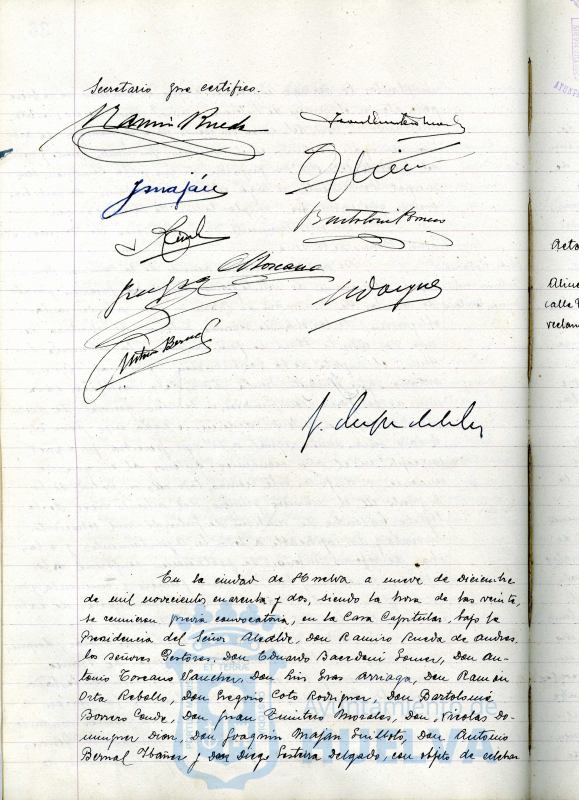 Secretario que certifico.
Ramiro Rueda
Bartolomé Borrero
A Toscano
Antonio Bernal
Acta
Aline
calle
reclam
En la ciudad de Huelva a nueve de Diciembre
de mil novecientos cuarenta y dos, siendo la hora de las veinte,
se reunieron previa convocatoria, en la Casa Capitular, bajo la
Presidencia del Señor Alcalde, Don Ramiro Rueda de Andrés
los señores Gestores, Don Eduardo Gomez, Don An-
tonio Toscano Sanchez, Don Luis Gras Arriaga, Don Ramon
Orta Rebollo, Don Gregorio Coto Rodriguez, Don Bartolomé
Borrero Conde, Don Juan Quintero Morales, Don Nicolas Do-
minguez Diaz, Don Joaquin Maján Guilloto, Don Antonio
Bernal Ibañez y Don Diego Sosteira Delgado, con objeto de celebrar
Ayuntamiento de
HUELVA